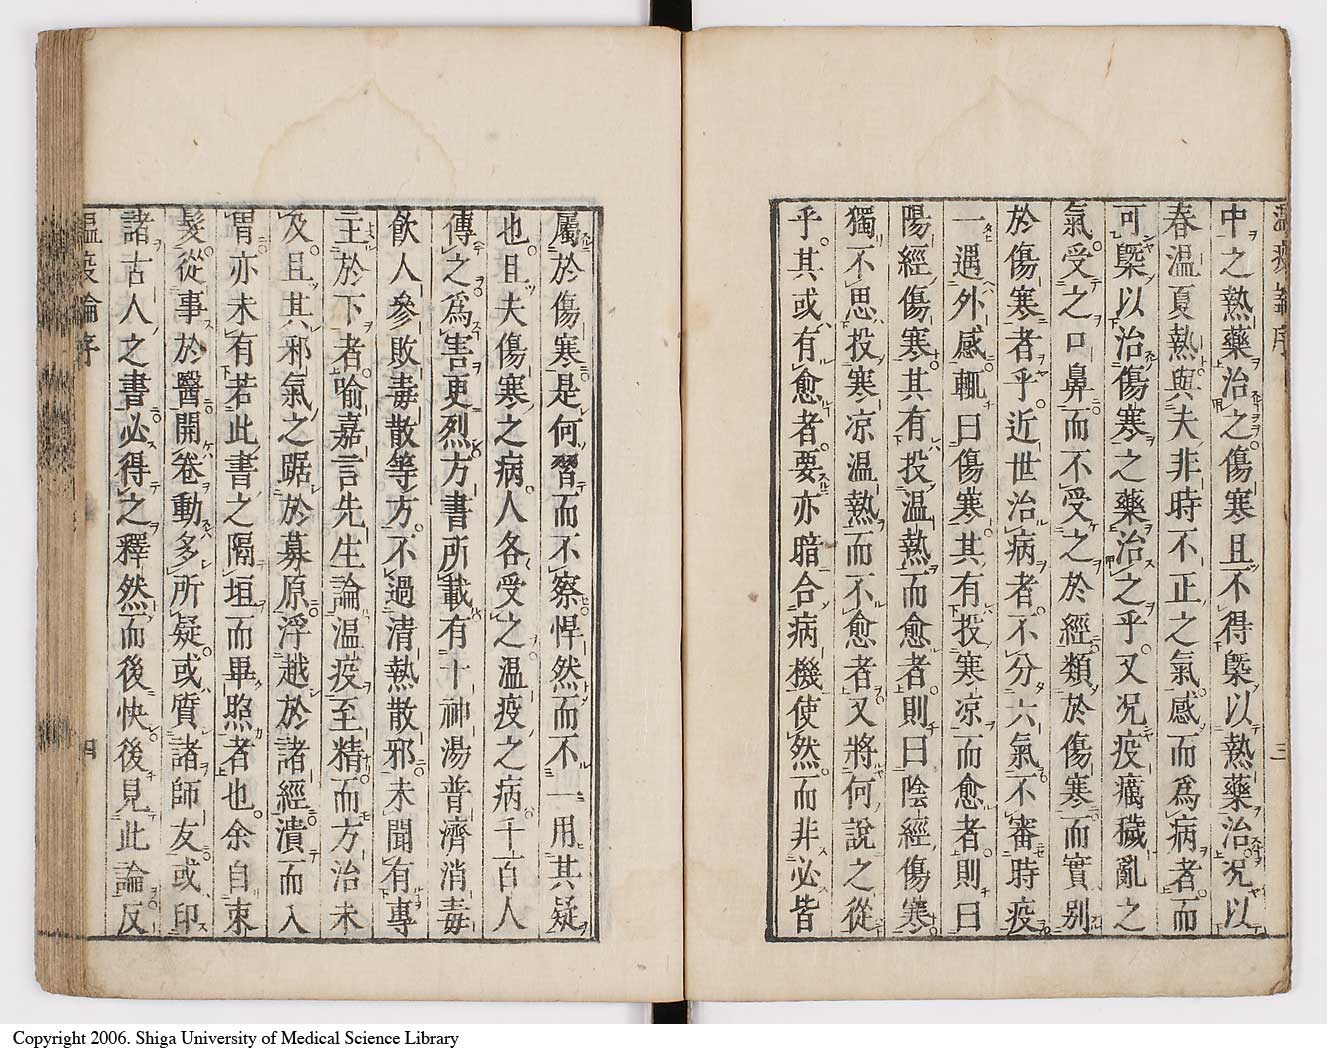 中之熱藥治之傷寒且不得槩以熱藥治況以
春温夏熱與夫非時不正之氣感而爲病者而
可槩以治傷寒之藥治之乎又況疫癘穢亂之
氣受之口鼻而不受之於經類於傷寒而實别
於傷寒者乎近世治病者不分六氣不審時疫
一遇外感輒曰傷寒其有投寒凉而愈者則曰
陽經傷寒其有投温熱而愈者則曰陰經傷寒
獨不思投寒凉温熱而不愈者又將何說之從
乎其或有愈者要亦暗合病機使然而非必皆
三
屬於傷寒是何習而不察悍然而不一用其疑
也且夫傷寒之病人各受之温疫之病千百人
傳之爲害更烈方書所載有十神湯普濟消毒
飲人參敗毒散等方不過清熱散邪未聞有專
主於下者喻嘉言先生論温疫至精而方治未
及且其邪氣之踞於募原浮越於諸經潰而入
胃亦未有若此書之隔垣而畢照者也余自束
髮從事於醫開卷動多所疑或質諸師友或印
諸古人之書必得之釋然而後快後見此論反
温疫論序
四
Copyright 2006. Shiga University of Medical Science Library